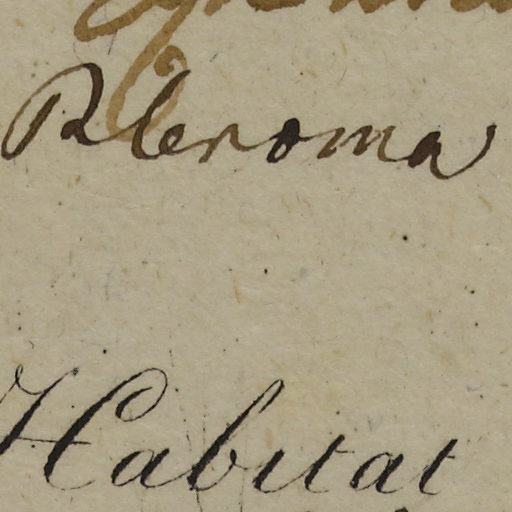 Pleroma
Habitat